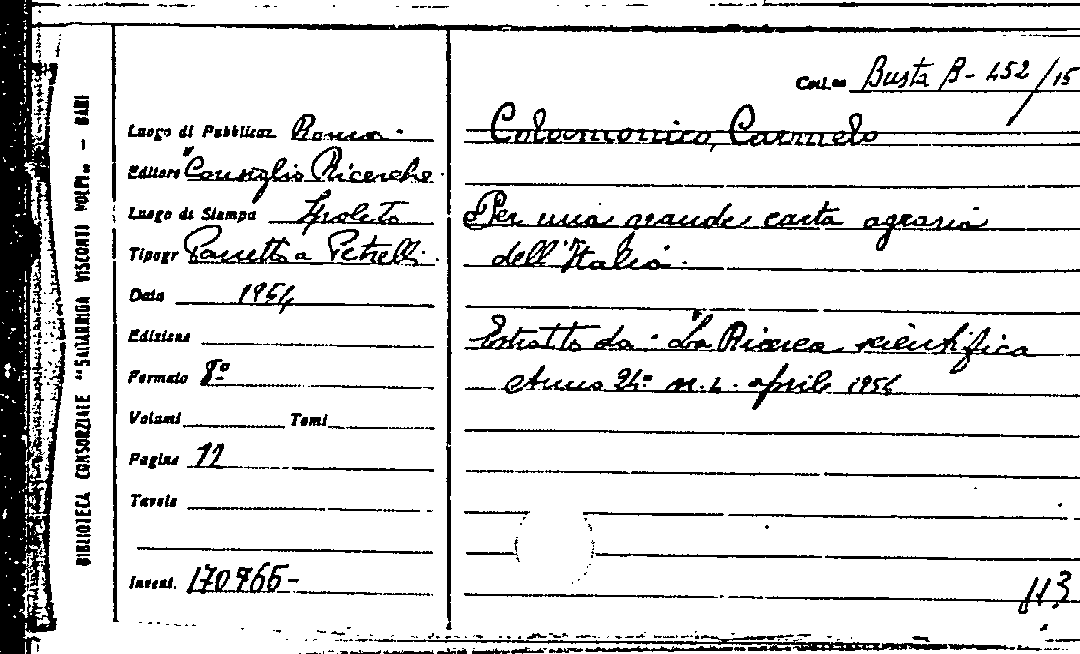 BIBLIOTECA CONSORZIALE "SAGARRIGA VISCONTI VOLPI" - BARI
Luogo di Pubblicaz. Roma.
Editore "Consiglio Ricerche.
Luogo di Stampa Spoleto
Tipogr Panetto a Petrelli.
Data 1954
Edizione
Formato 8º
Volumi Tomi
Pagine 11
Tavole
Invent. 170765-
Coll.ne Busta B-452/15
Colamonico, Carmelo
Per una grande carta agraria
dell'Italia.
Estratto da: "La Ricerca scientifica
Anno 24º n. 4. aprile 1954
113